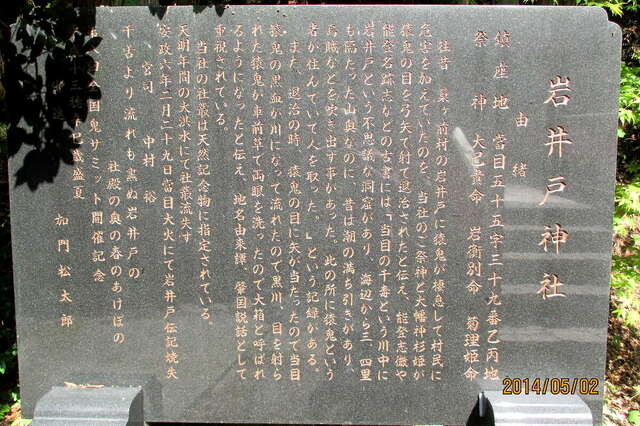 岩井戸神社
由緒
鎮座地 當目五十五字三十九番乙丙地
祭神 大己貴命 岩衝別命 菊理姫命
往昔 粟ヶ前村の岩井戸に猿鬼が棲息して村民に
危害を加えていたのを、当社のご祭神と大幡神杉姫が
猿鬼の目を弓矢で射て退治されたと伝え、能登志徴や
能登名跡志などの古書には「当目の千毒という川中に
岩井戸という不思議な洞窟があり、海辺から三、四里
も隔たった山奥なのに、昔は潮の満ち引きがあり、
烏賊などを吹き出す事があった。此の所に猿鬼という
者が住んでいて人を取った。」という記録がある。
また、退治の時、猿鬼の目に矢が当たったので当目
猿鬼の黒血が川になって流れたので黒川、目を射ら
れた猿鬼が車前草で両眼を洗ったので大箱と呼ばれ
るようになったと伝え、地名由来譚、肇国説話として
重視されている。
当社の社叢は天然記念物に指定されている。
天明年間の大洪水にて社叢流失す
安政六年二月二十九日當目大火にて岩井戸伝記焼失
宮司 中村 裕
千早より流れも尽ぬ岩井戸の
社殿の奥の春のあけぼの
全国鬼サミット開催記念
歳盛夏
加門松太郎
2014/05/02